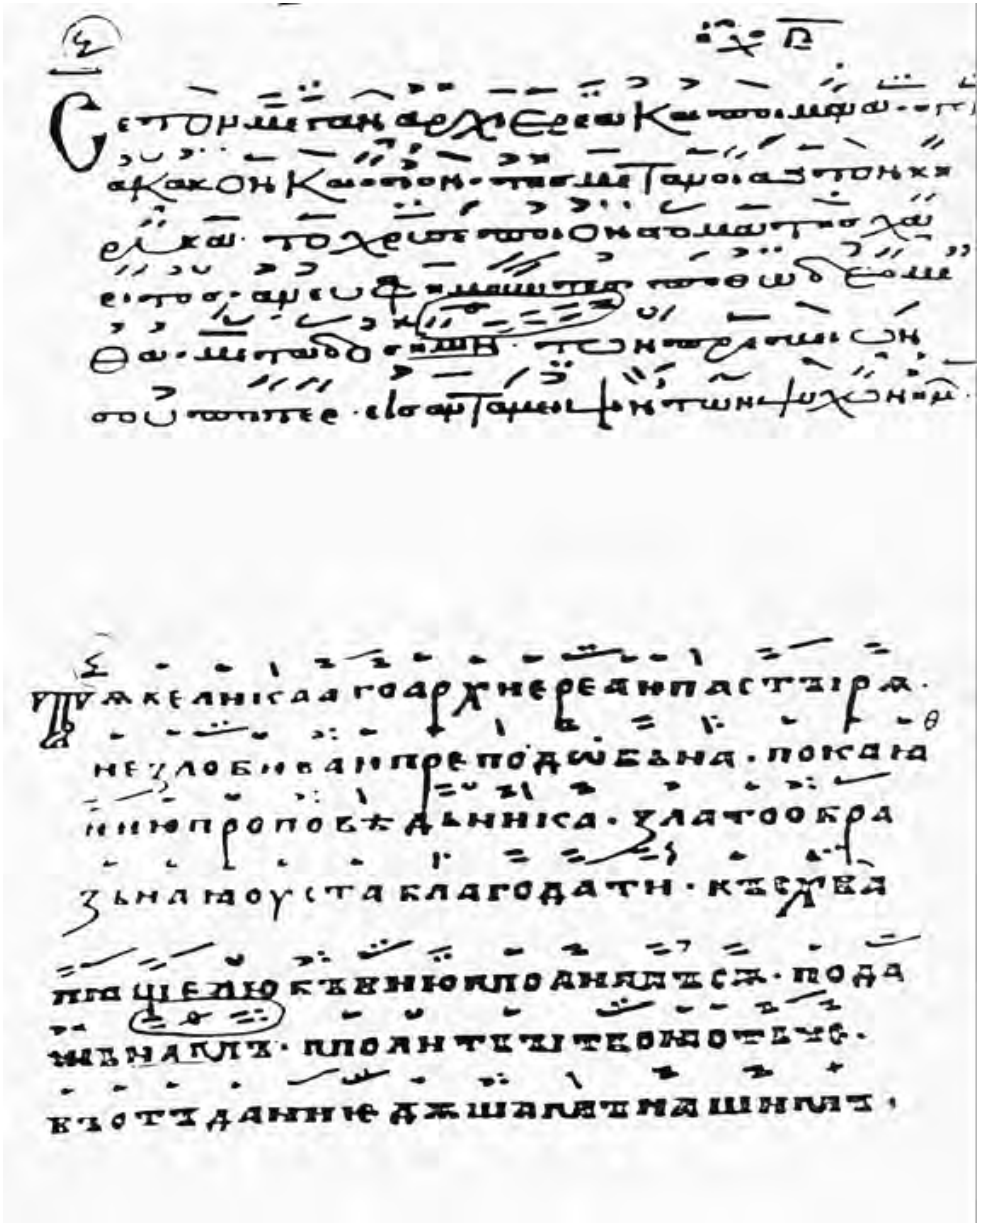 Σε τον μεγαν αρχιερεα και ποιμενα · τ
ακακον και οσιον · της μετανοιας τον κη
ρυκα · το χρυσεπποιον στομα της χα
ριτος · ανευφημουντες ποθω δεομε
θα · μεταδος ημιν · των πρεσβειων
σου πατερ · εις ανταμειψιν των ψυχων ημ ·
тѧ великааго архиереа и пастъірѧ ·
незлобива и преподѡбьна · покаꙗ θ
нию проповѣдьника · златообра
зьнаꙗ оуста благодати · въсхва
лꙗще любъвию молимъ сѧ · пода
жь намъ · молитвъі твоѭ отьче ·
въ отъдание дѫшамъ нашимъ ·